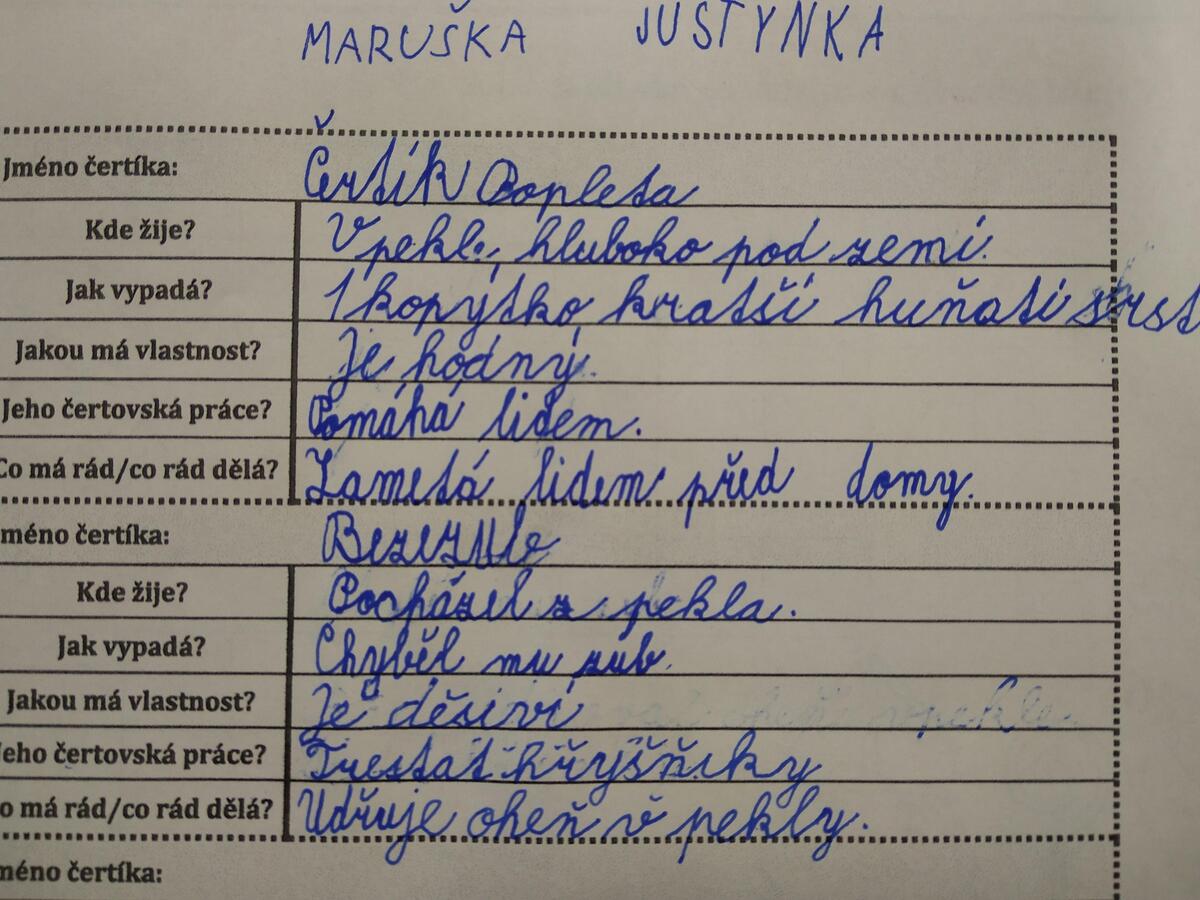 MARUŠKA JUSTÝNKA
Jméno čertíka: Čertík Popleta
Kde žije? V pekle, hluboko pod zemí.
Jak vypadá? 1 kopýtko kratší huňatí srst
Jakou má vlastnost? Je hodný.
Jeho čertovská práce? Pomáhá lidem.
Co má rád/co rád dělá? Zametá lidem před domy.
méno čertíka: Bezezub
Kde žije? Pocházel z pekla.
Jak vypadá? Chyběl mu zub.
Jakou má vlastnost? Je děsiví
Jeho čertovská práce? Trestat hřyšňíky
o má rád/co rád dělá? Udřuje oheň v pekly.
méno čertíka: